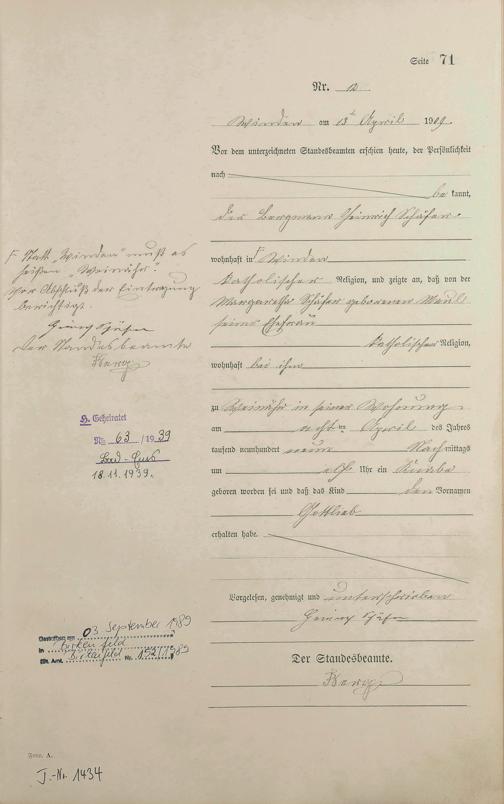 Seite 71
Nr. 12
Winden am 13ten April 1909.
Vor dem unterzeichneten Standesbeamten erschien heute, der Persönlichkeit
nach
be kannt,
der Bergmann Heinrich Schäfer
wohnhaft in F Winden
katholischer Religion, und zeigte an, daß von der
Margarethe Schäfer geborenen
seiner Ehefrau
katholischer Religion,
wohnhaft bei ihm
zu Weinähr in seiner Wohnung
am acht ten April des Jahres
tausend neunhundert neun Nach mittags
um elf Uhr ein Knabe
geboren worden sei und daß das Kind den Vornamen
Gottlieb
erhalten habe.
Vorgelesen, genehmigt und unterschrieben
Heinrich Schäfer
Der Standesbeamte.
Herg
F Statt "Winden" muß es
heißen "Weinähr".
vor Abschluß der Eintragung
berichtigt.
Heinrich Schäfer
Der Standesbeamte
Herg
H. Geheiratet
Nr. 63 /1939
Bad-Ems
18.11.1939.
Gestorben am 03. September 1989
in Birkenfeld
Sta. Amt. Birkenfeld Nr. 152/1989
Form. A.
J.-Nr. 1434